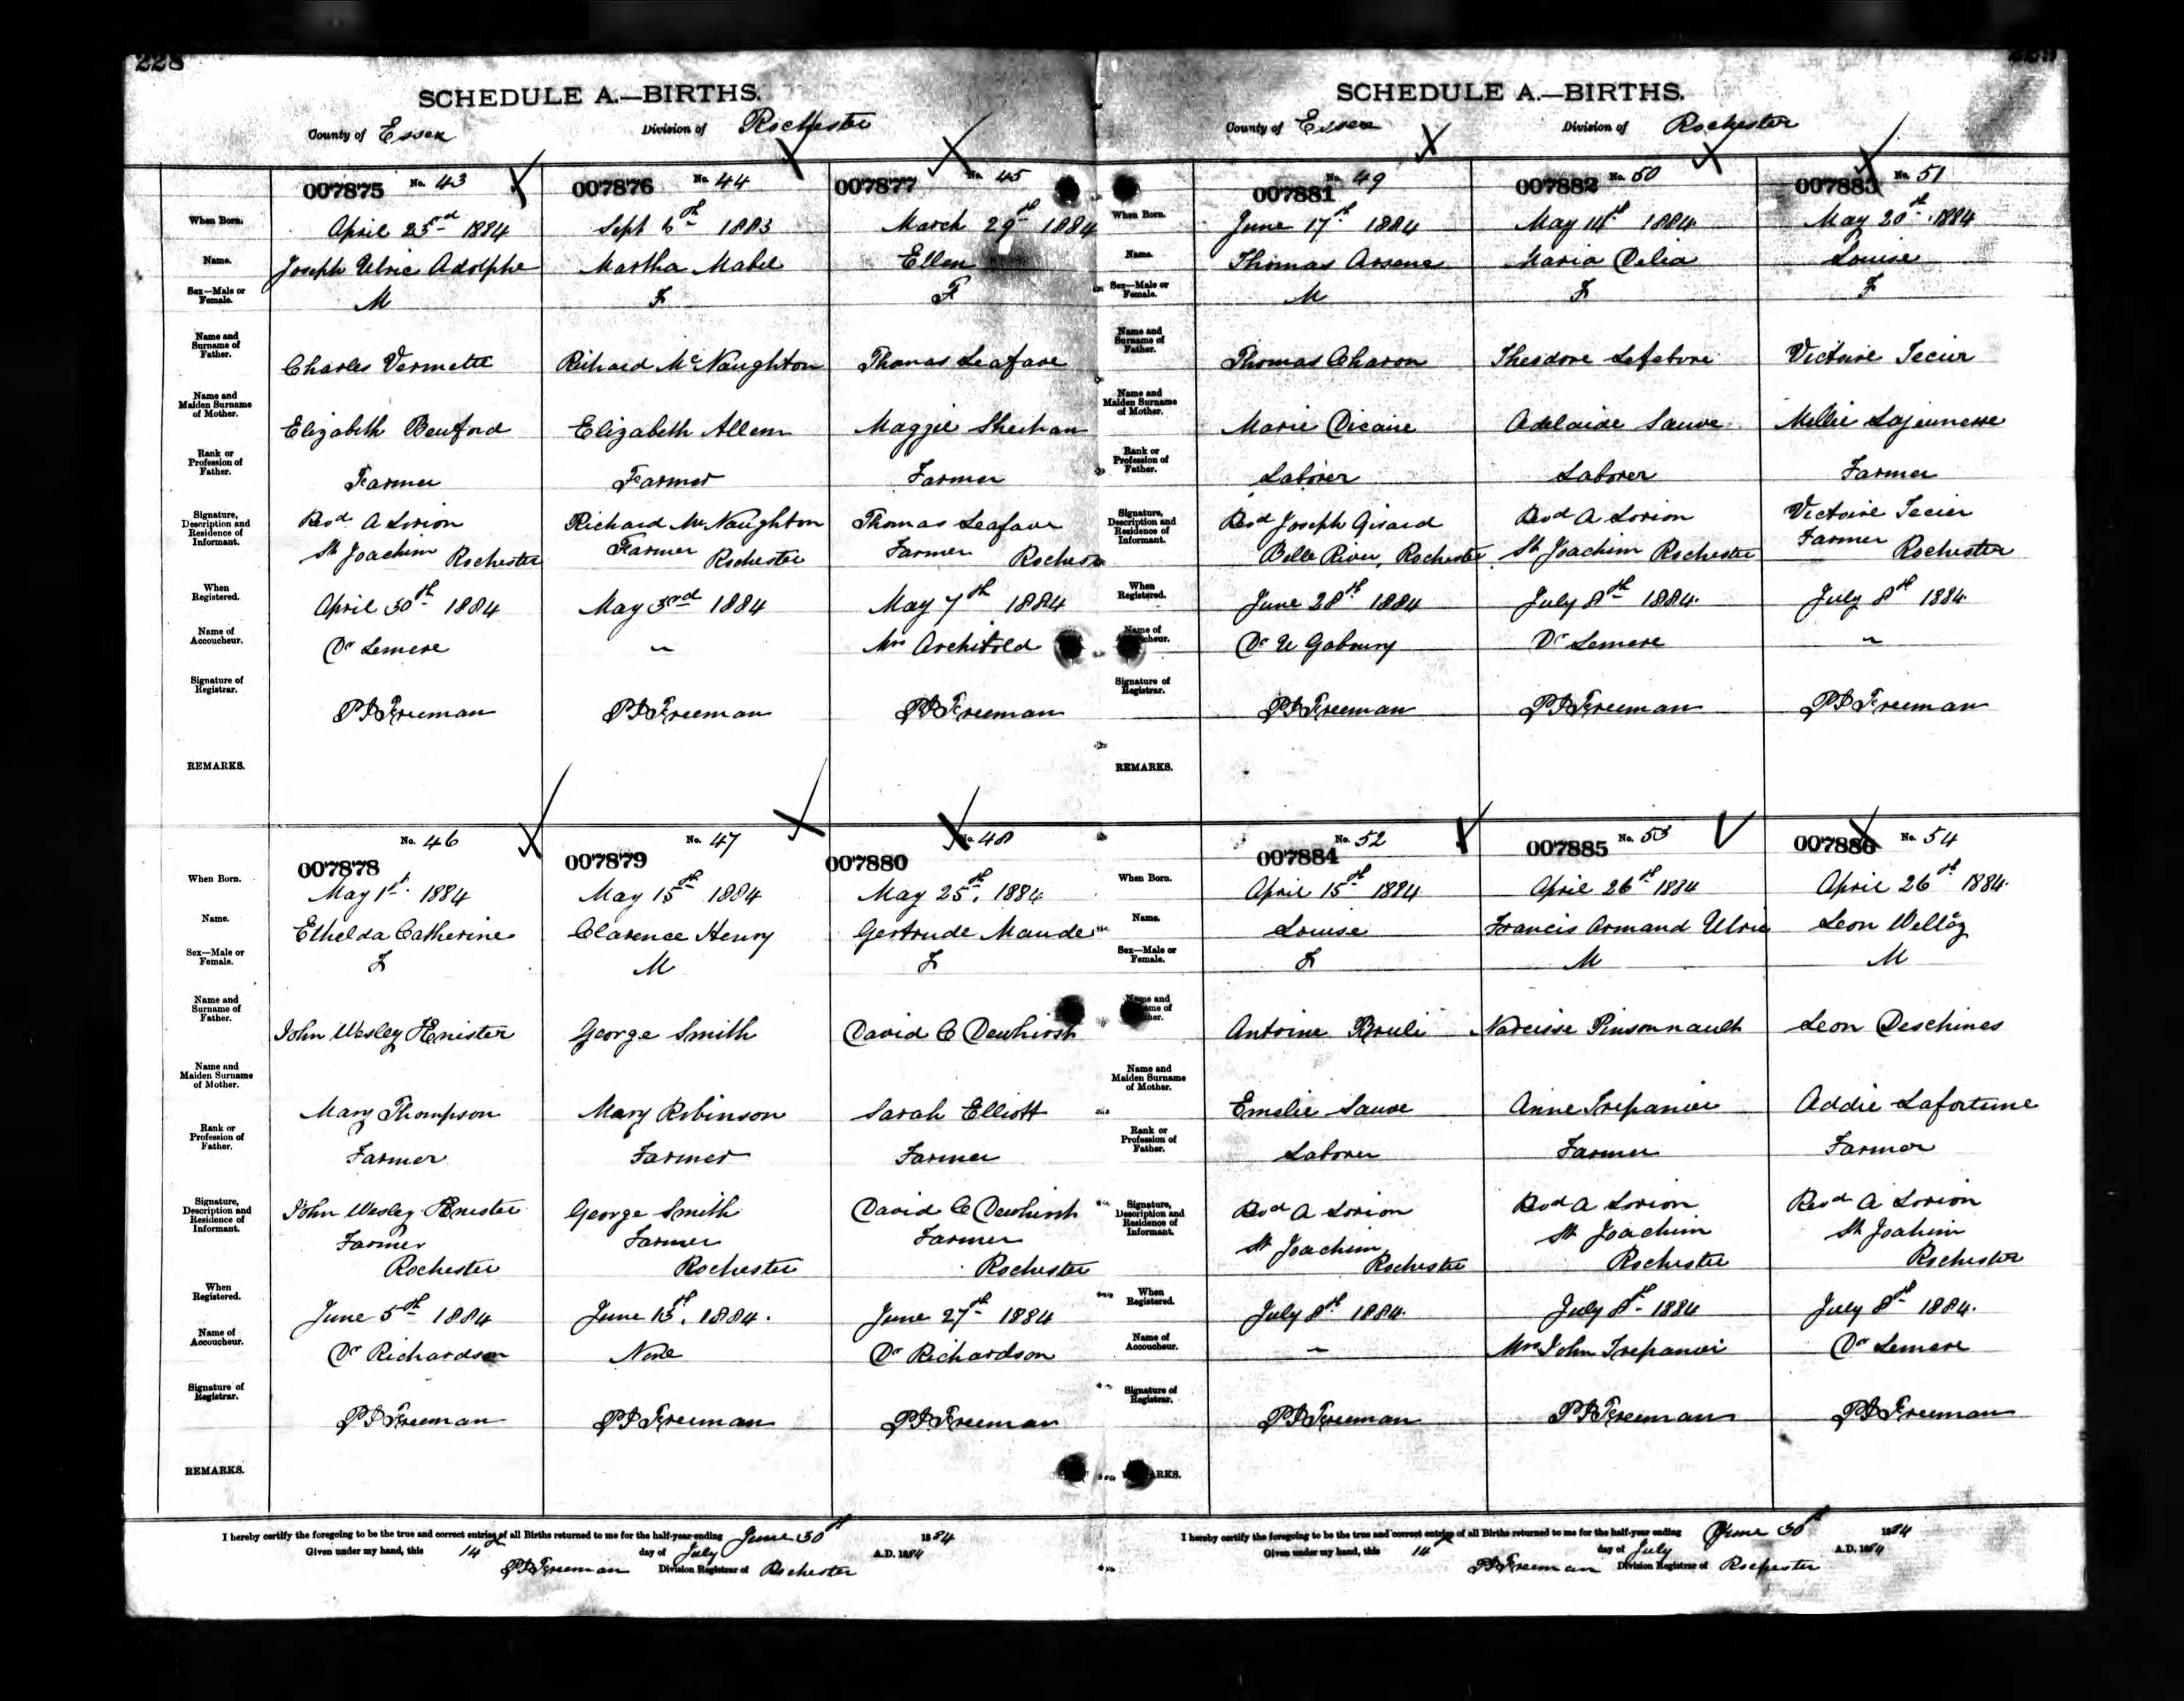 228
SCHEDULE A.—BIRTHS.
County of Essex Division of Rochester
007875 No. 43 007876 No. 44 007877 No. 45
When Born. April 23rd 1884 Sept 6th 1883 March 29th 1884
Name. Joseph Ulric Adolphe Martha Mabel Ellen
Sex—Male or Female. M F F
Name and Surname of Father. Charles Vermette Richard McNaughton Thomas Leafave
Name and Maiden Surname of Mother. Elizabeth Beuford Elizabeth Allen Maggie Sheehan
Rank or Profession of Father. Farmer Farmer Farmer
Signature, Description and Residence of Informant. Revd A Lorion Richard McNaughton Thomas Leafave
St Joachim Rochester Farmer Rochester Farmer
When Registered. April 30th 1884 May 3rd 1884 May 7th 1884
Name of Accoucheur. Dr Lemere ~ Mrs Architold
Signature of Registrar. PD Freeman PD Freeman PD Freeman
REMARKS.
No. 46 No. 47 No. 48
007878 007879 007880
When Born. May 1st 1884 May 15th 1884 May 25th, 1884
Name. Ethelda Catherine Clarence Henry Gertrude Maude
Sex—Male or Female. F M F
Name and Surname of Father. John Wesley Enister George Smith David C Dewhirst
Name and Maiden Surname of Mother. Mary Thompson Mary Robinson Sarah Elliott
Rank or Profession of Father. Farmer Farmer Farmer
Signature, Description and Residence of Informant. John Wesley Enister George Smith David C Dewhirst
Farmer Farmer Farmer
Rochester Rochester Rochester
When Registered. June 5th 1884 June 1884. June 27th 1884
Name of Accoucheur. Dr Richardson None Dr Richardson
Signature of Registrar. PD Freeman PD Freeman PD Freeman
REMARKS.
I hereby certify the foregoing to be the true and correct entries of all Births returned to me for the half-year ending June 30th 1884
Given under my hand, this 14th day of July A.D. 1884
PD Freeman Division Registrar of Rochester
SCHEDULE A.—BIRTHS.
County of Essex Division of Rochester
007881 No. 49 007882 No. 50 007883 No. 51
When Born. June 17th 1884 May 1884 May 20th 1884
Name. Thomas Arsene Maria Delia Louise
Sex—Male or Female. M F F
Name and Surname of Father. Thomas Charon Theodore Lefebvre Victoire Tecier
Name and Maiden Surname of Mother. Marie Dicaire Adelaide Sauve Mellie Lajeunesse
Rank or Profession of Father. Laborer Laborer Farmer
Signature, Description and Residence of Informant. Revd Joseph Girard Revd A Lorion Victoire Tecier
Belle River, Rochester St Joachim Rochester Farmer Rochester
When Registered. June 28th 1884 July 8th 1884. July 8th 1884.
Name of Accoucheur. Dr U Gaboury Dr Lemere ~
Signature of Registrar. PD Freeman PD Freeman PD Freeman
REMARKS.
No. 52 No. 53 No. 54
007884 007885 007886
When Born. April 15th 1884 April 26th 1884 April 26th 1884.
Name. Louise Francis Armand Ulric Leon
Sex—Male or Female. F M M
Antoine Bruli Narcisse Pinsonnault Leon Deschines
Name and Maiden Surname of Mother. Emelie Sauve Anne Trepanier Addie Lafortune
Rank or Profession of Father. Laborer Farmer Farmer
Signature, Description and Residence of Informant. Revd A Lorion Revd A Lorion Revd A Lorion
St Joachim St Joachim St Joahim
Rochester Rochester Rochester
When Registered. July 8th 1884. July 8th 1884 July 8th 1884.
Name of Accoucheur. ~ Mrs John Trepanier Dr Lemere
Signature of Registrar. PD Freeman PD Freeman PD Freeman
I hereby certify the foregoing to be the true and correct entries of all Births returned to me for the half-year ending June 30th 1884
Given under my hand, this 14 day of July A.D. 1884
PD Freeman Division Registrar of Rochester